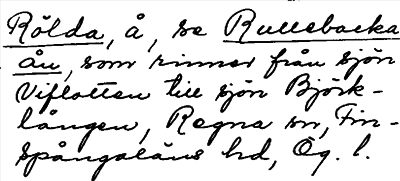 Rölda, å, se Rullebacka
ån, som rinner från sjön
Viflotten till sjön Björk-
lången, Regna sn, Fin-
spångaläns hd, Ög. l.